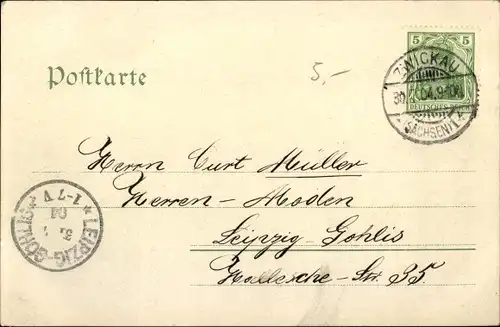 5 5
ZWICKAU
30. 04. 9-10
(SACHSEN) 1
DEUTSCHES
Postkarte
5,-
Herrn Curt Müller
Herren-Moden
Leipzig-Gohlis
Hallesche-Str. 35.
1-7 V
04
LEIPZIG-GOHLIS